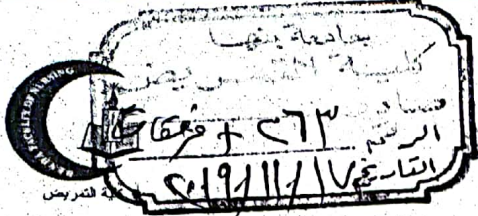 جامعة بنها
كلية التمريض
صادر
الرقم ٢٦٣ + مرفقات
التاريخ ٢٠١٩/١١/١٧
BENHA FACULTY OF NURSING
كلية التمريض